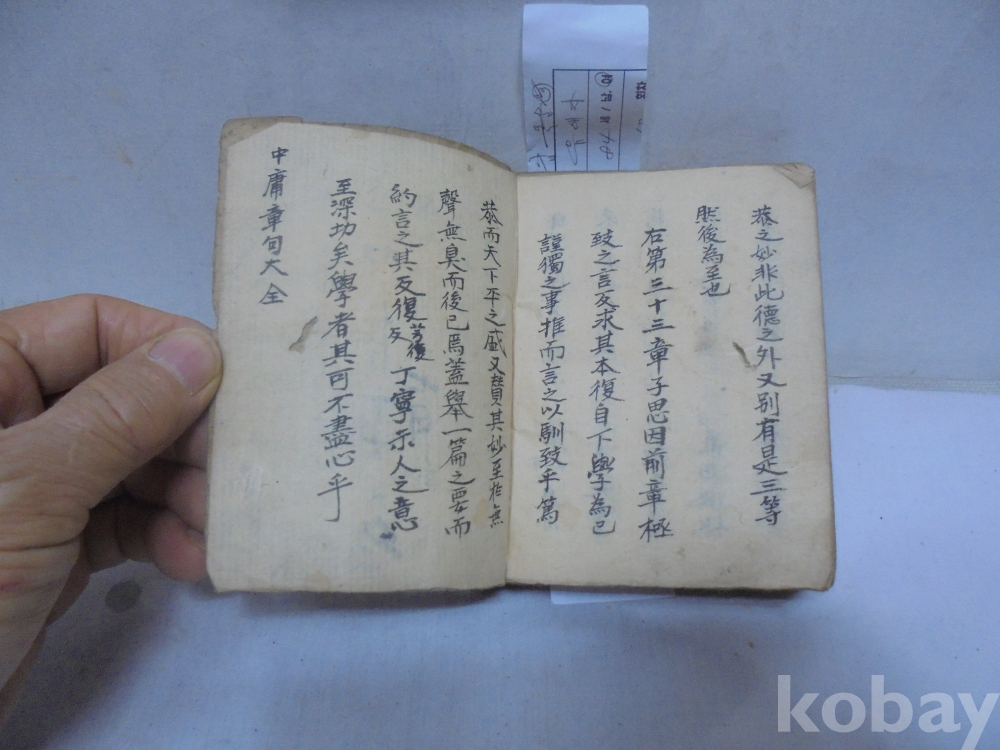 恭之妙非此德之外又別有是三等
然後為至也
右第三十三章子思因前章極
致之言反求其本復自下學為己
謹獨之事推而言之以馴致乎篤
恭而天下平之盛又贊其妙至於無
聲無臭而後已焉蓋舉一篇之要而
約言之其反復丁寧示人之意
至深切矣學者其可不盡心乎
中庸章句大全
kobay